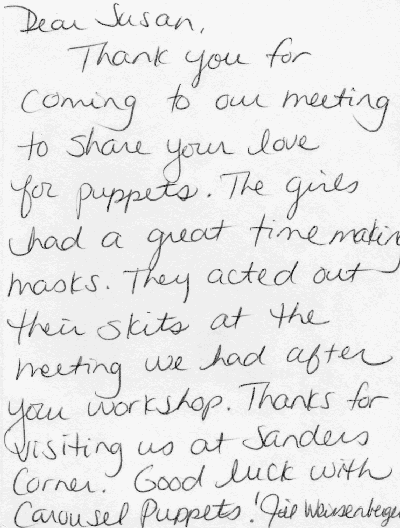 Dear Susan,
Thank you for
coming to our meeting
to share your love
for puppets. The girls
had a great time making
masks. They acted out
their skits at the
meeting we had after
your workshop. Thanks for
visiting us at Sanders
Corner. Good luck with
Carousel Puppets! Jill Weissenberger